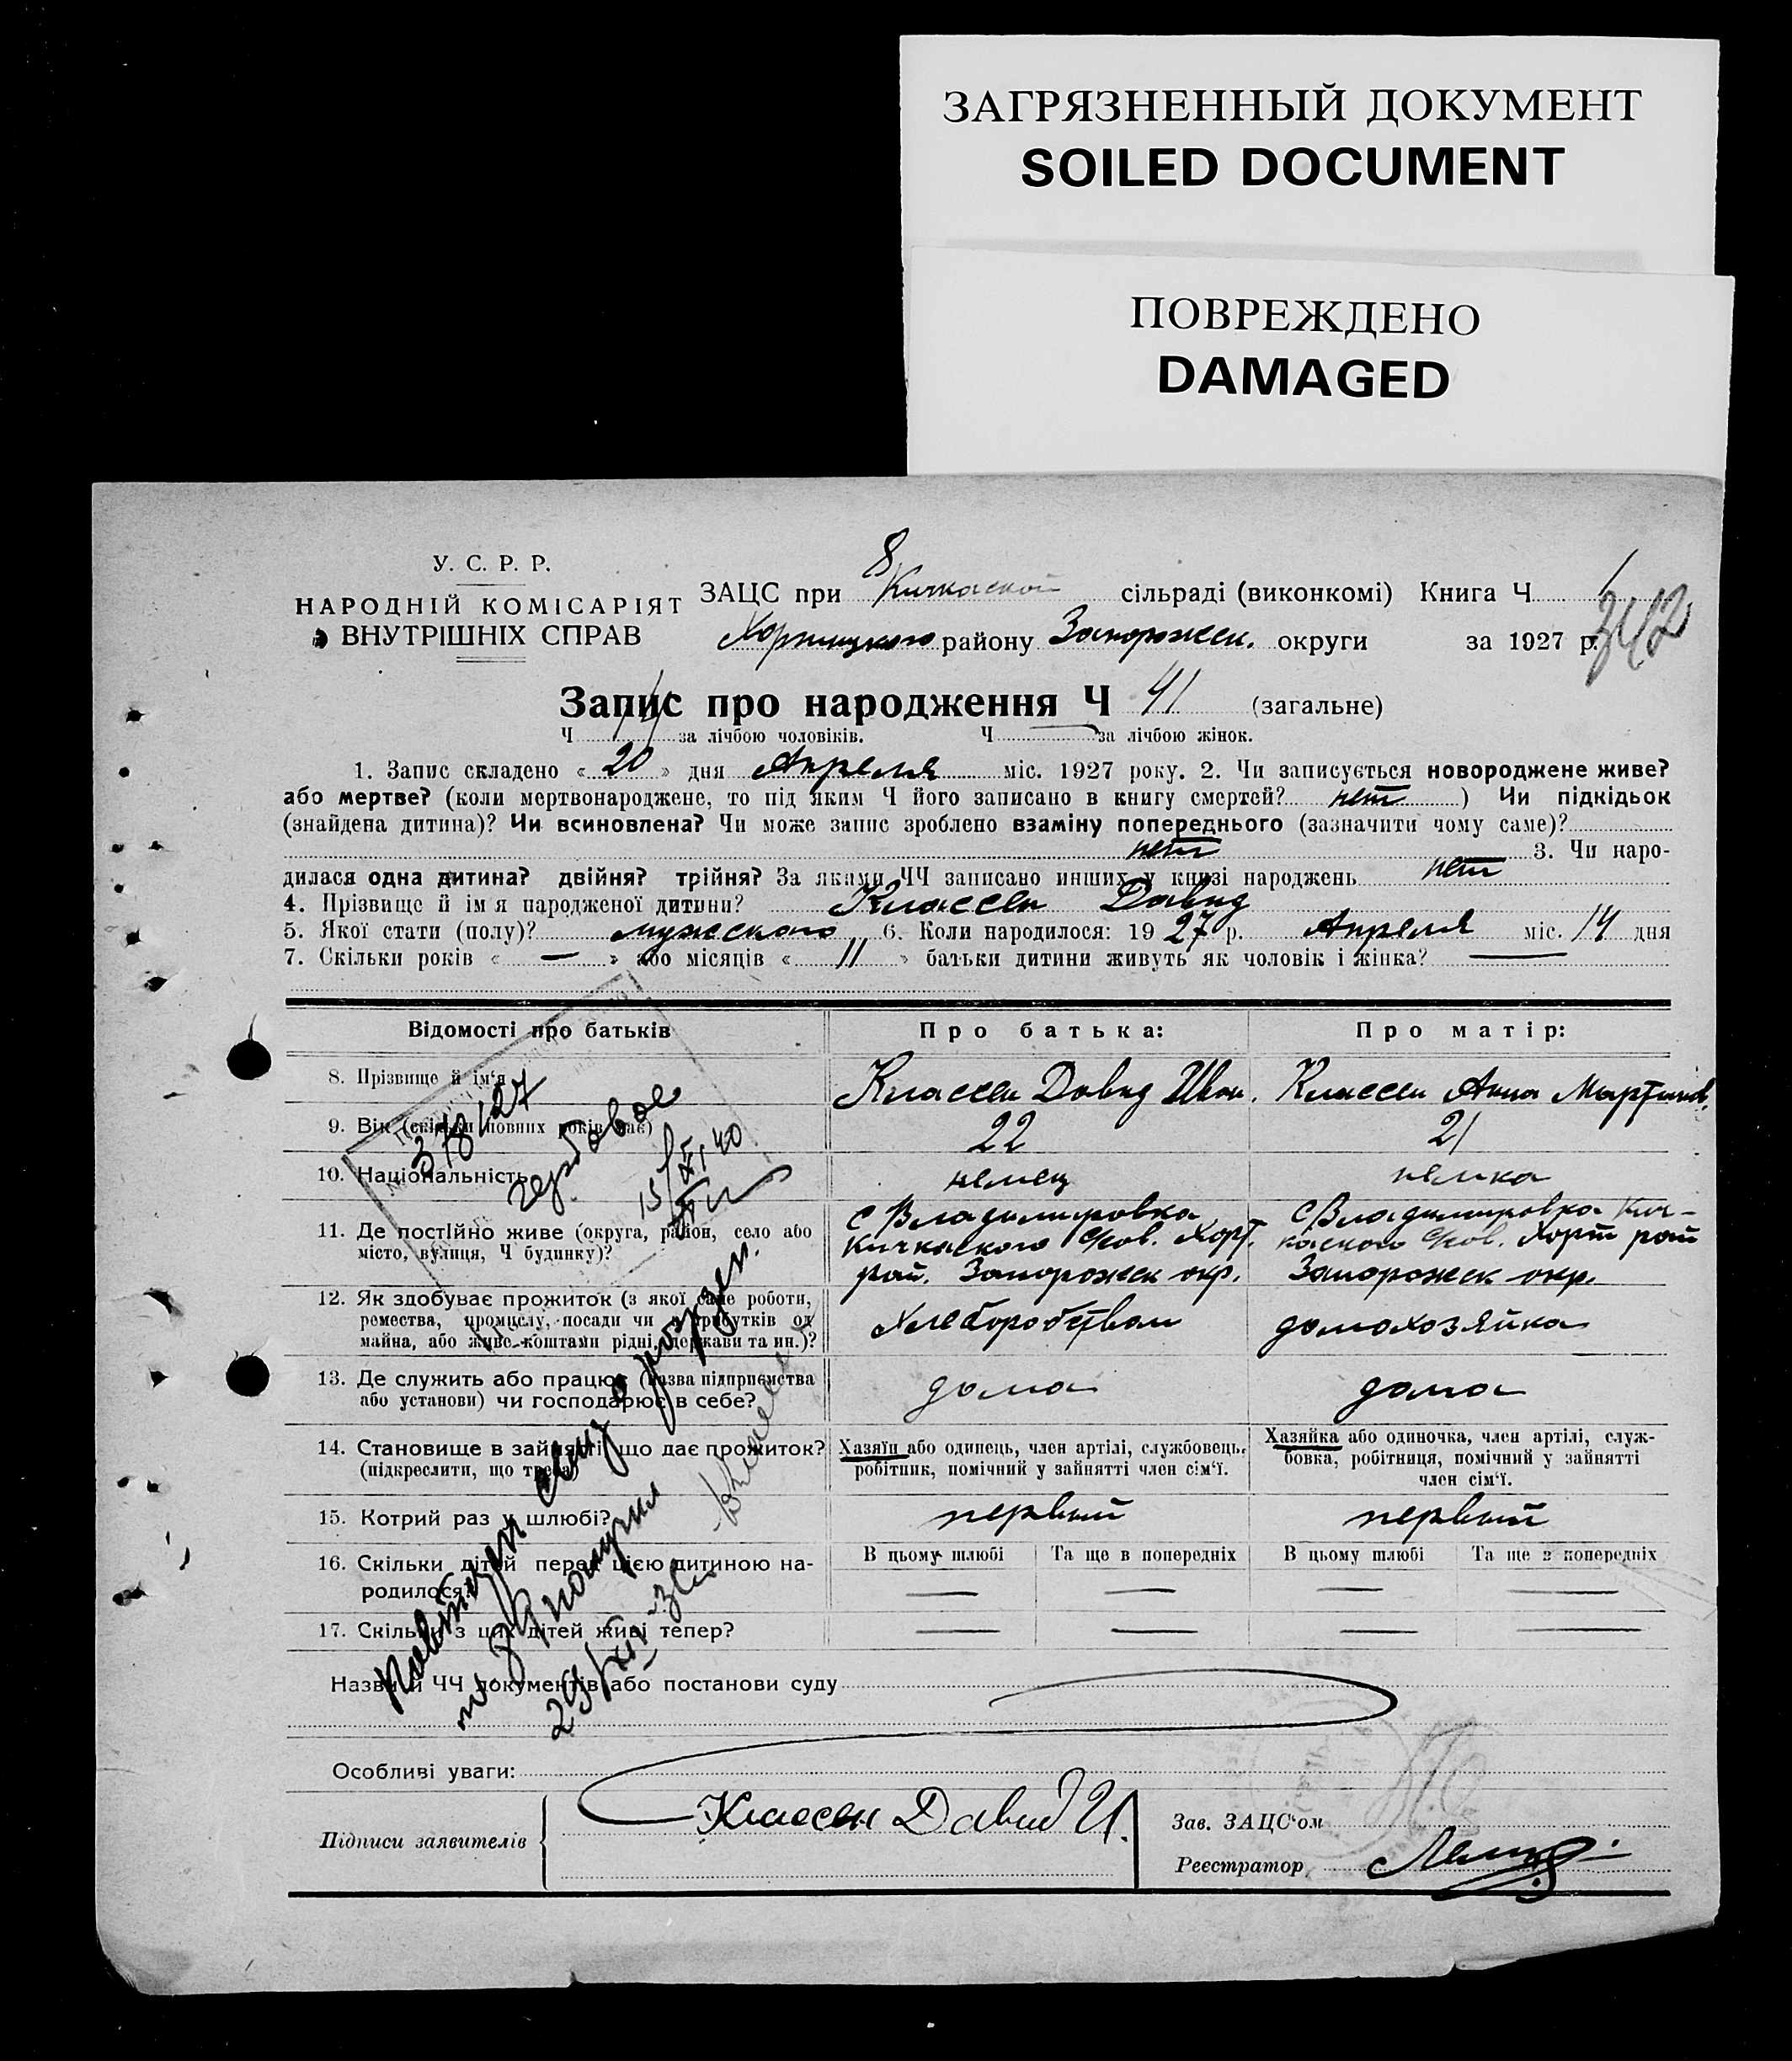 ЗАГРЯЗНЕННЫЙ ДОКУМЕНТ
SOILED DOCUMENT
ПОВРЕЖДЕНО
DAMAGED
У. С. Р. Р.
НАРОДНІЙ КОМІСАРІЯТ
ВНУТРІШНІХ СПРАВ
8
ЗАЦС при Кичкаской сільраді (виконкомі) Книга Ч 1
Хортицкого району Запорожск. округи за 1927 р. 342
Запис про народження Ч 41 (загальне)
Ч за лічбою чоловіків. Ч за лічбою жінок.
1. Запис складено « 20 » дня Апреля міс. 1927 року. 2. Чи записується новороджене живе?
або мертве? (коли мертвонароджене, то під яким Ч його записано в книгу смертей? нет ) Чи підкідьок
(знайдена дитина)? Чи всиновлена? Чи може запис зроблено взаміну попереднього (зазначити чому саме)?
нет 3. Чи наро-
дилася одна дитина? двійня? трійня? За якими ЧЧ записано инших у книзі народжень нет
4. Прізвище й ім'я народженої дитини? Классен Давид
5. Якої стати (полу)? мужеского 6. Коли народилося: 1927 р. Апреля міс. 14 дня
7. Скільки років « — » або місяців « 11 » батьки дитини живуть як чоловік і жінка? —
Відомості про батьків Про батька: Про матір:
8. Прізвище й ім'я Классен Давид Иван. Классен Анна Мартинов.
9. Вік (скільки повних років має) 22 21
378/27
гербовое
15/XI 40
10. Національність немец немка
11. Де постійно живе (округа, район, село або
місто, вулиця, Ч будинку)?
с Владимировка
Кичкаского Хорт.
рай. Запорожск окр.
с Владимировка Кич-
каского Хорт рай
Запорожск окр.
12. Як здобуває прожиток (з якої саме роботи,
ремества, промислу, посади чи прибутків од
майна, або живе коштами рідні, держави та ин.)?
Хлеборобством домохозяйка
13. Де служить або працює (назва підприємства
або установи) чи господарює в себе?
дома дома
14. Становище в зайнятті, що дає прожиток?
(підкреслити, що треба)
Хазяїн або одинець, член артілі, службовець,
робітник, помічний у зайнятті член сім'ї.
Хазяйка або одиночка, член артілі, служ-
бовка, робітниця, помічний у зайнятті
член сім'ї.
15. Котрий раз у шлюбі? первый первый
16. Скільки дітей перед цією дитиною на-
родилося?
В цьому шлюбі Та ще в попередніх В цьому шлюбі Та ще в попередніх
— — — —
17. Скільки з цих дітей живі тепер? — — — —
получил
Назви й ЧЧ документів або постанови суду
Особливі уваги:
Підписи заявителів Классен Давид И.
Зав. ЗАЦС'ом
Реєстратор